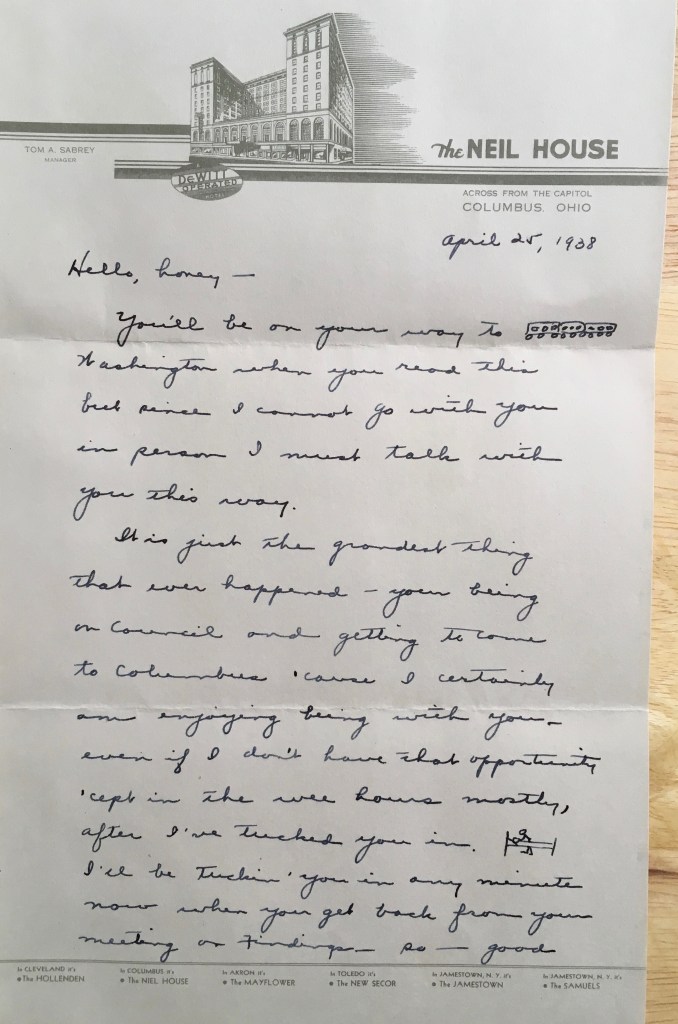 TOM A. SABREY
MANAGER
DeWITT
OPERATED
HOTEL
The NEIL HOUSE
ACROSS FROM THE CAPITOL
COLUMBUS, OHIO
April 25, 1938
Hello, honey —
You'll be on your way to
Washington when you read this
but since I cannot go with you
in person I must talk with
you this way.
It is just the grandest thing
that ever happened – your being
on Council and getting to come
to Columbus 'cause I certainly
am enjoying being with you –
even if I don't have that opportunity
'cept in the wee hours mostly,
after I've tucked you in.
I'll be tuckin' you in any minute
now when you get back from your
meeting on Findings – so — good
In CLEVELAND it's
• The HOLLENDEN
In COLUMBUS it's
• The NIEL HOUSE
In AKRON it's
• The MAYFLOWER
In TOLEDO it's
• The NEW SECOR
In JAMESTOWN, N. Y. it's
• The JAMESTOWN
In JAMESTOWN, N. Y. it's
• The SAMUELS